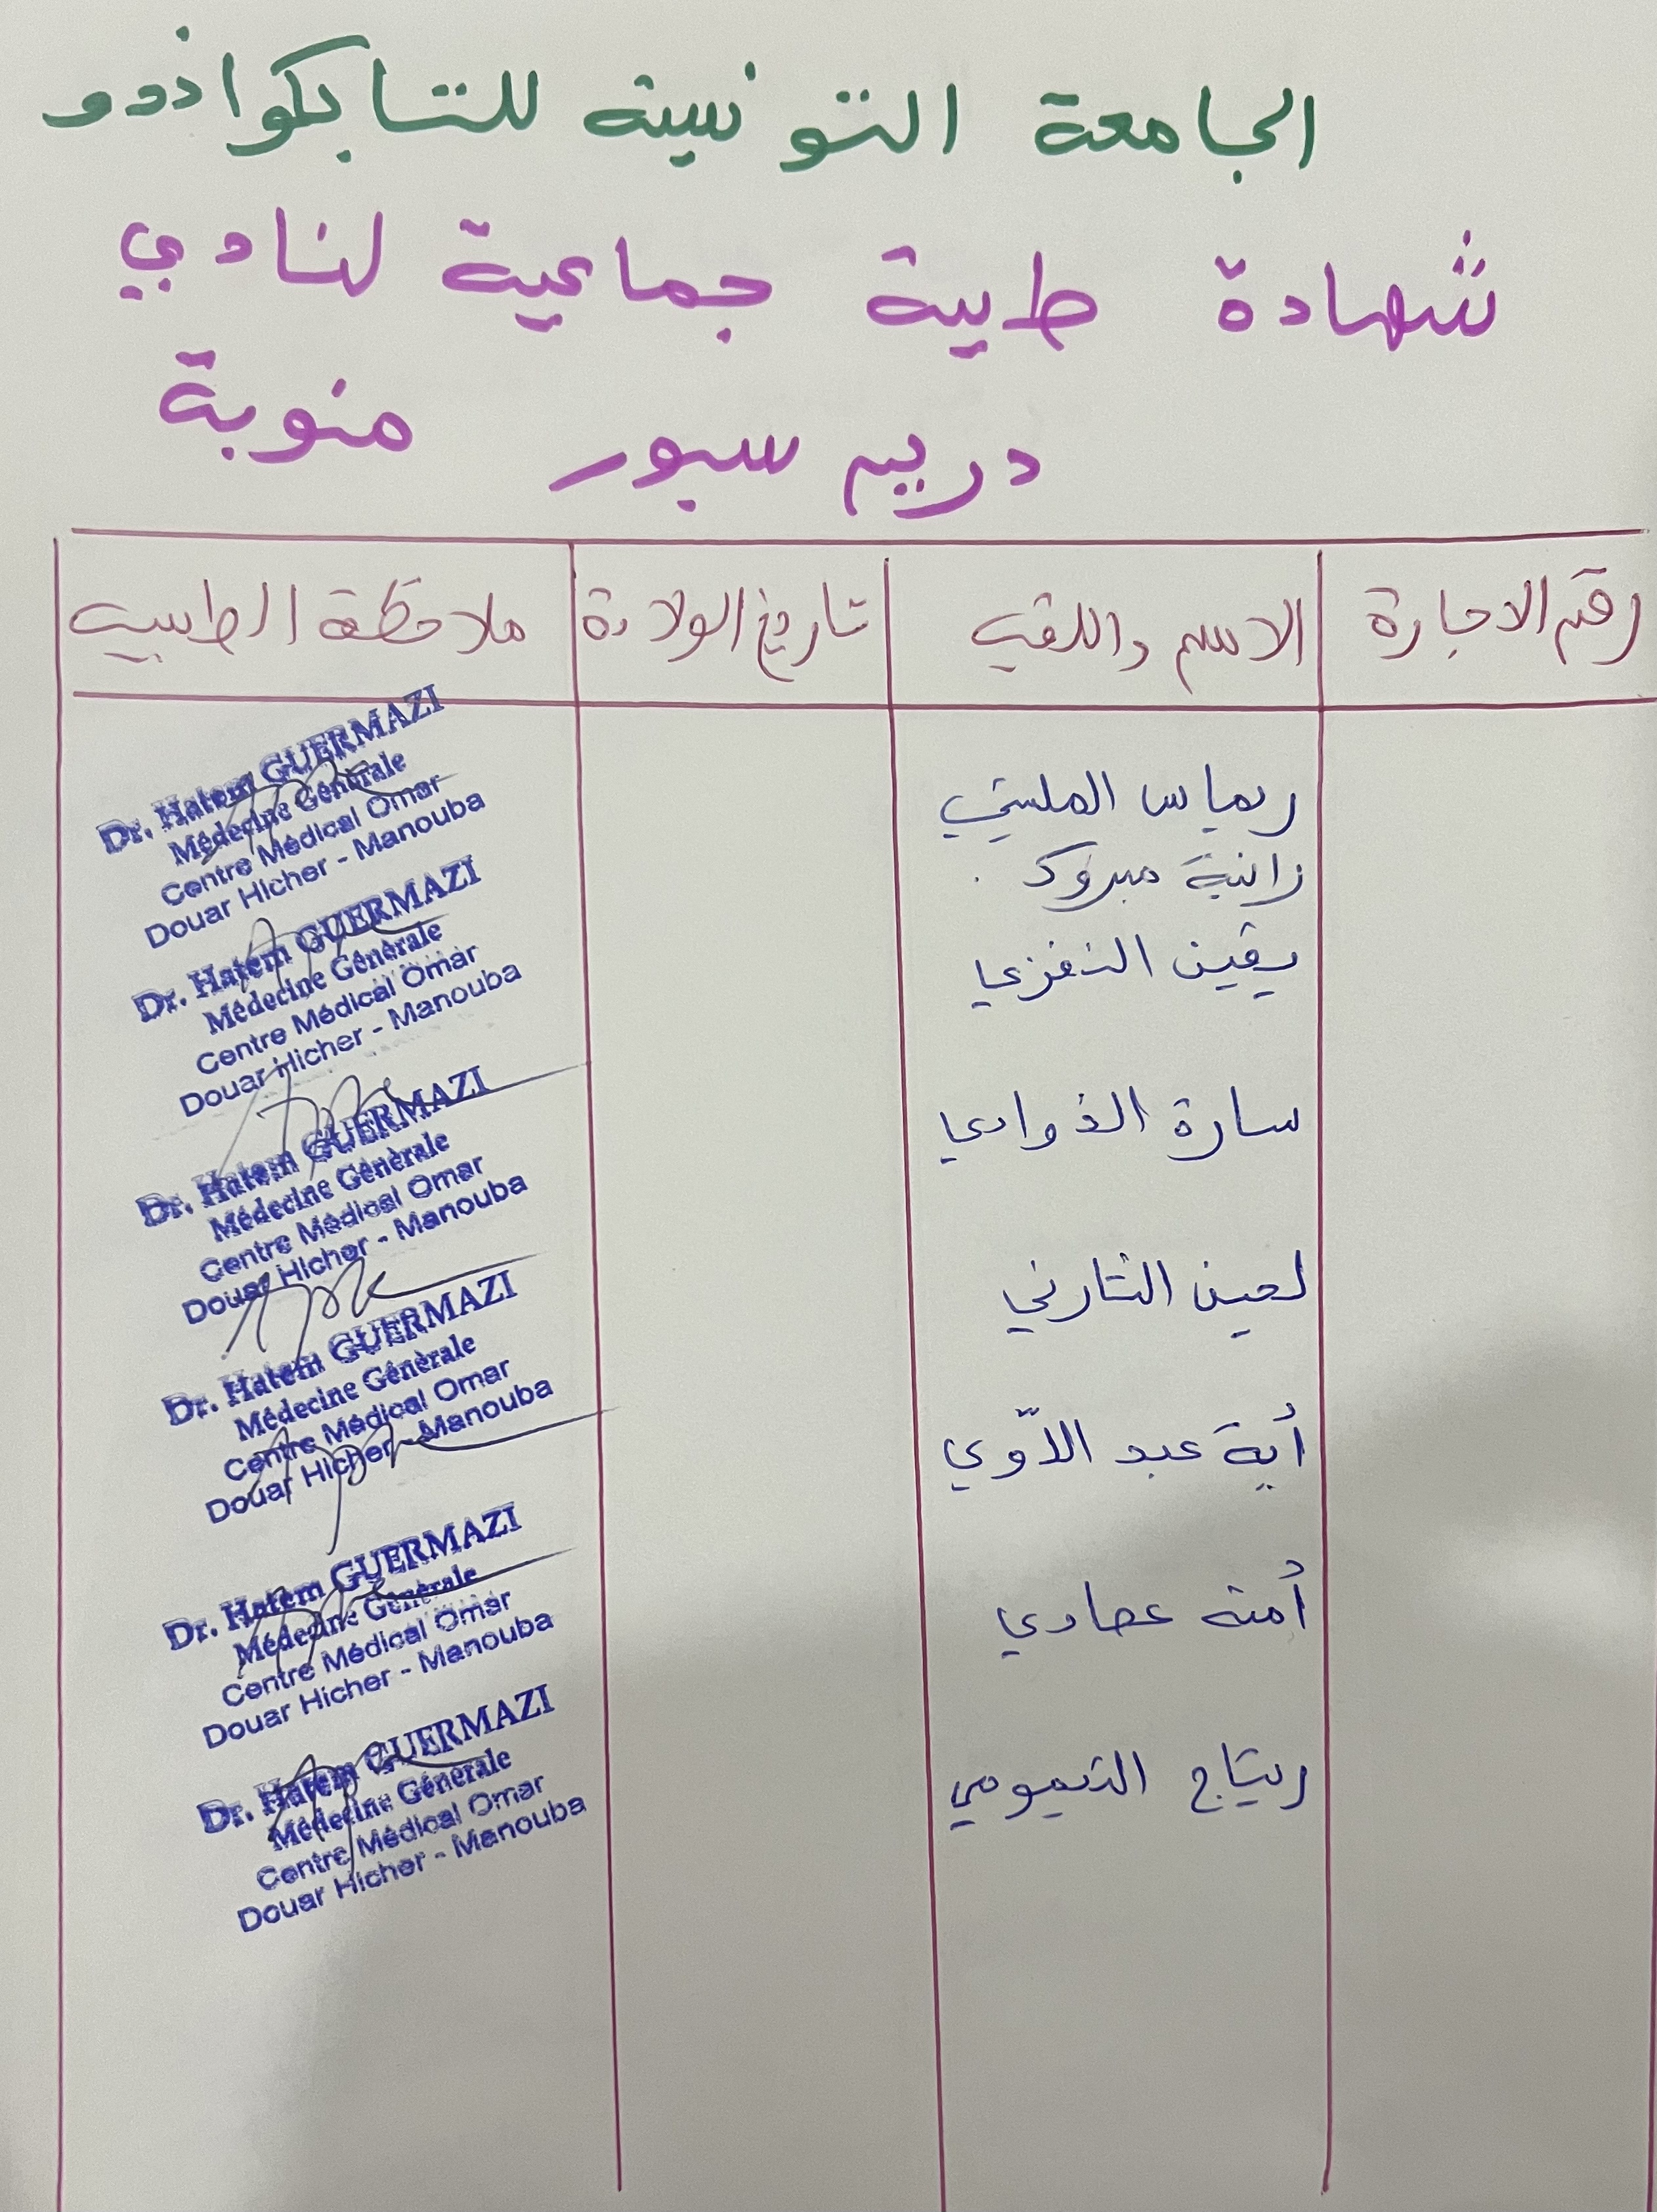 الجامعة التونسية للتايكواندو
شهادة طبية جماعية لنادي
دريم سبور منوبة
رقم الاجازة
الاسم واللقب
تاريخ الولادة
ملاحظة الطبيب
ريماس
رانية مبروك
يقين النفزي
سارة الذوادي
لجين
أية عبد اللاّوي
أمنة عمادي
ريتاج التيمومي
Dr. Hatem GUERMAZI
Médecine Générale
Centre Médical Omar
Douar Hicher - Manouba
Dr. Hatem GUERMAZI
Médecine Générale
Centre Médical Omar
Douar Hicher - Manouba
Dr. Hatem GUERMAZI
Médecine Générale
Centre Médical Omar
Douar Hicher - Manouba
Dr. Hatem GUERMAZI
Médecine Générale
Centre Médical Omar
Douar Hicher - Manouba
Dr. Hatem GUERMAZI
Médecine Générale
Centre Médical Omar
Douar Hicher - Manouba
Dr. Hatem GUERMAZI
Médecine Générale
Centre Médical Omar
Douar Hicher - Manouba